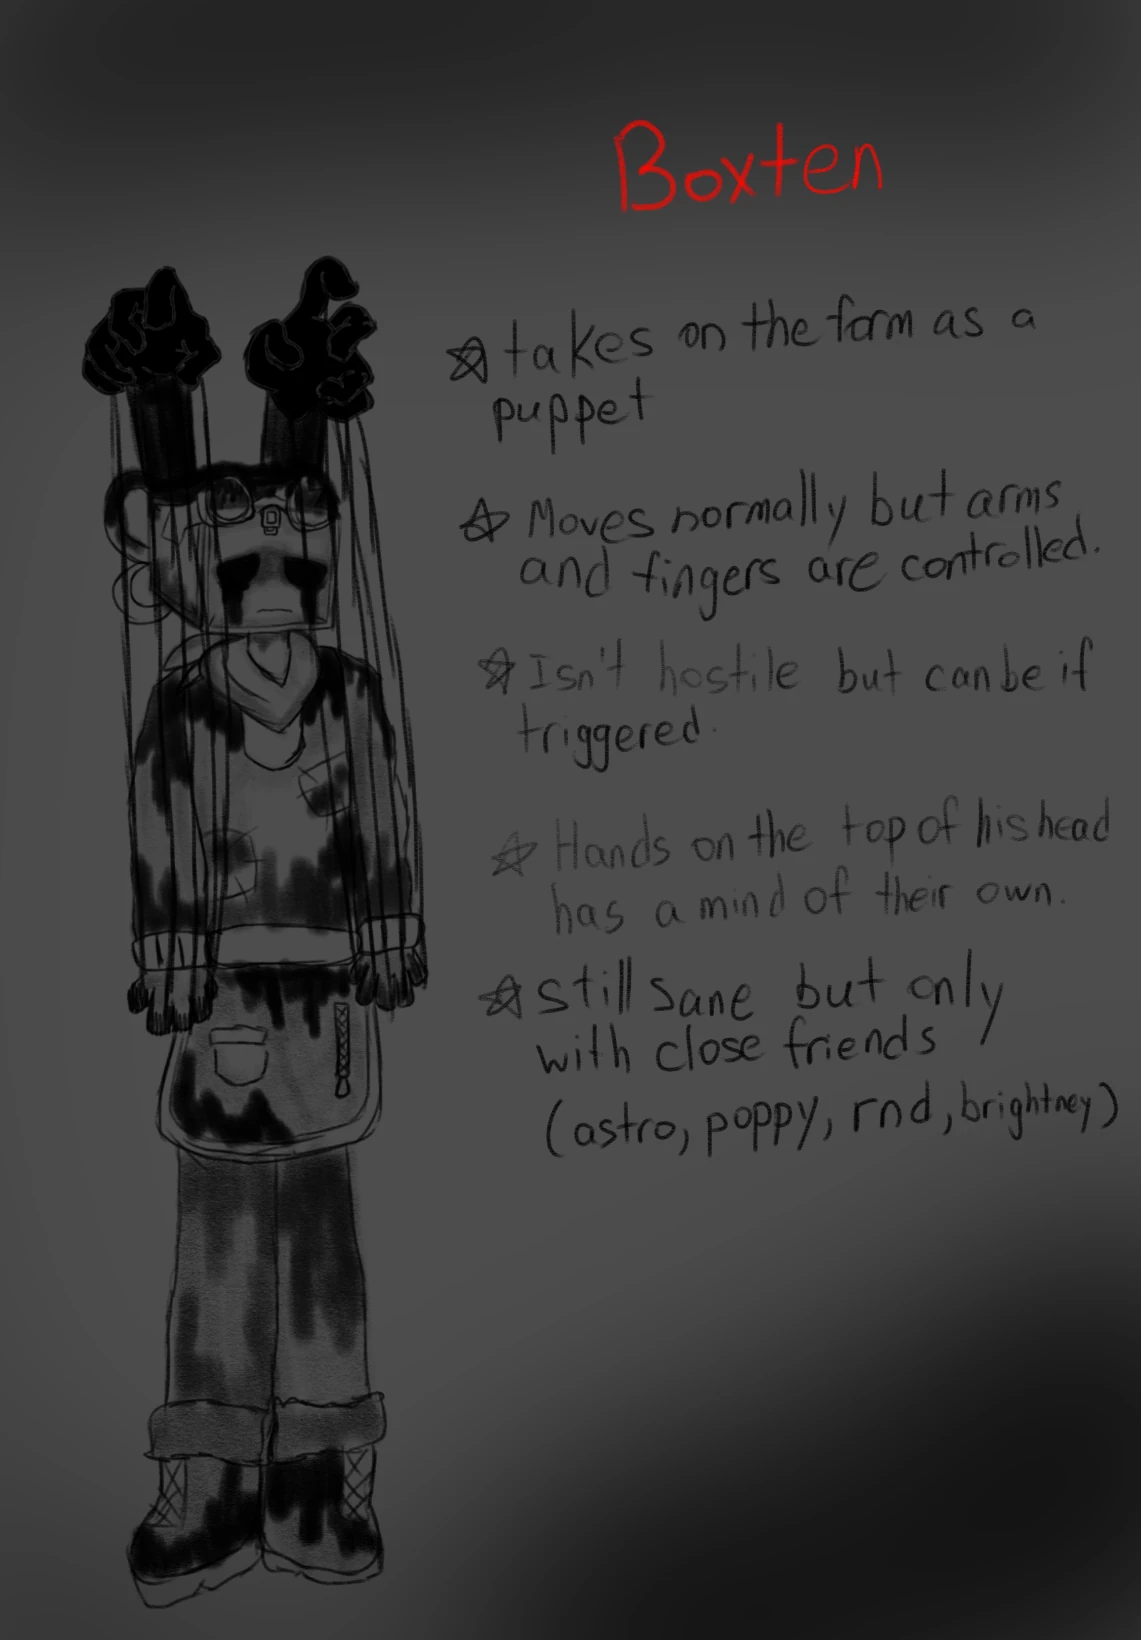 Boxten
takes on the form as a
puppet
Moves normally but arms
and fingers are controlled.
Isn't hostile but can be if
triggered.
Hands on the top of his head
has a mind of their own.
Still sane but only
with close friends
(astro, poppy, rnd, brightney)